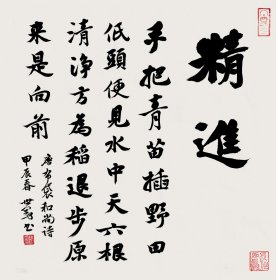 精進
手把青苗插野田
低頭便見水中天六根
清净方為稻退步原
来是向前
唐布袋和尚诗
甲辰春世翔书